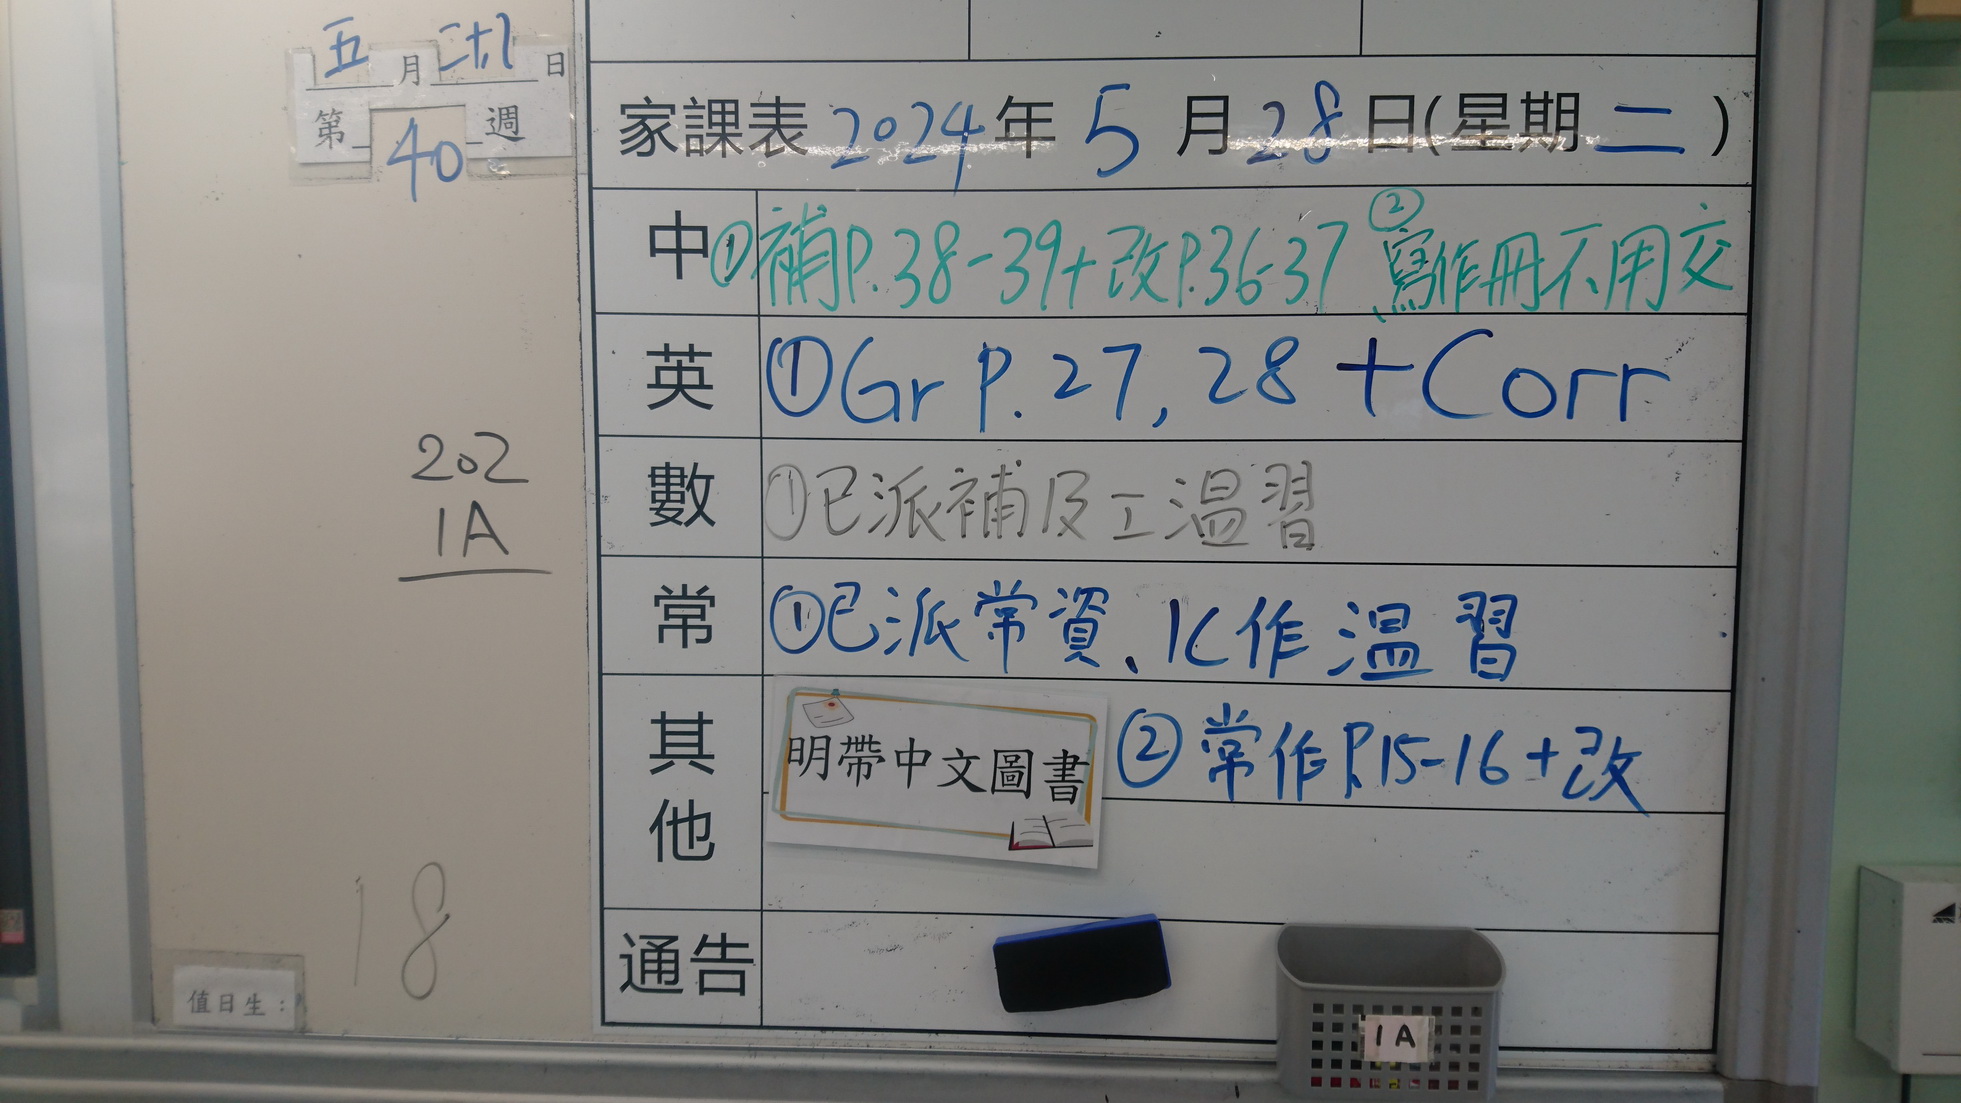 五月二十八日
第40週
家課表 2024年 5月28日(星期二)
中 ①補P.38-39+改P.36-37 ②寫作冊不用交
英 ①Gr P.27, 28 + Corr
數 ①已派補及工溫習
常 ①已派常資、IC作溫習
其他 明帶中文圖書 ②常作P.15-16+改
通告
202
1A
18
值日生:
1A